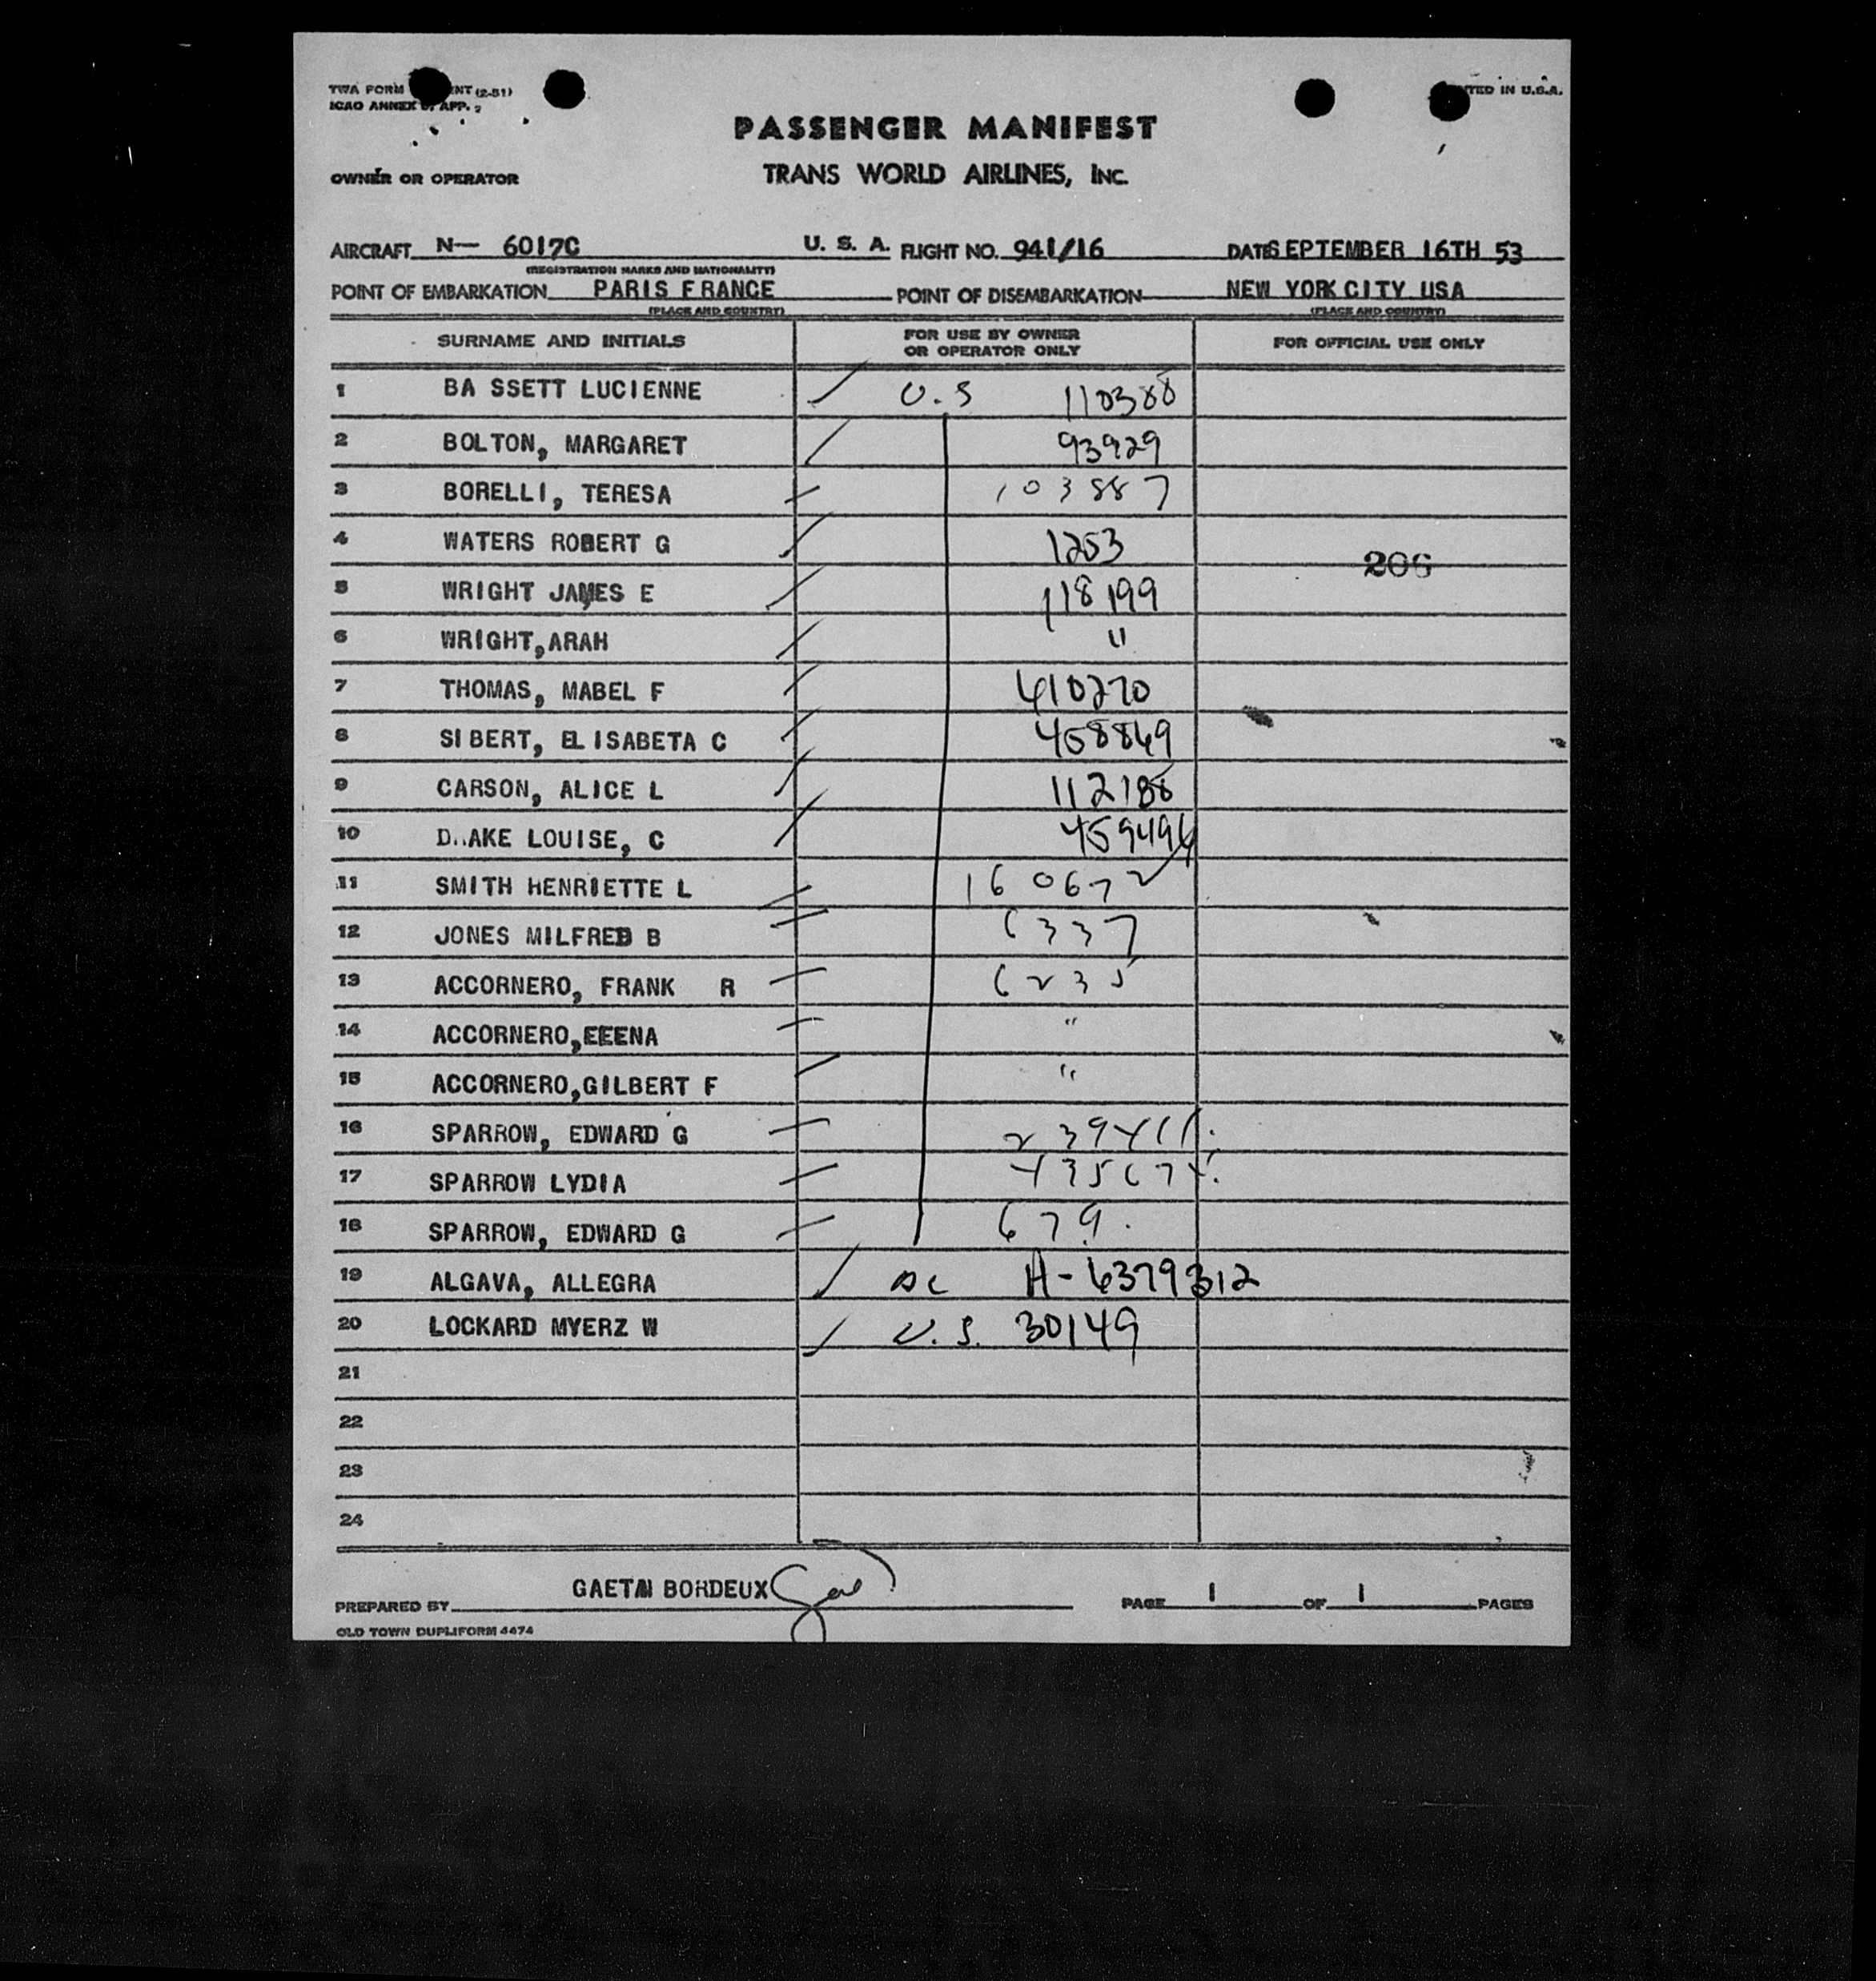 TWA FORM ENT (2-51)
ICAO ANNEX 9, APP. 2
TED IN U.S.A.
PASSENGER MANIFEST
OWNER OR OPERATOR TRANS WORLD AIRLINES, INC.
AIRCRAFT N— 6017C U. S. A. FLIGHT NO. 941/16 DATE SEPTEMBER 16TH 53
(REGISTRATION MARKS AND NATIONALITY)
POINT OF EMBARKATION PARIS FRANCE POINT OF DISEMBARKATION NEW YORK CITY USA
(PLACE AND COUNTRY) (PLACE AND COUNTRY)
SURNAME AND INITIALS FOR USE BY OWNER OR OPERATOR ONLY FOR OFFICIAL USE ONLY
1 BA SSETT LUCIENNE U.S 110388
2 BOLTON, MARGARET 93929
3 BORELLI, TERESA 103887
4 WATERS ROBERT G 1253
206
5 WRIGHT JAMES E 118199
6 WRIGHT,ARAH "
7 THOMAS, MABEL F 410270
8 SIBERT, ELISABETA C 458869
9 CARSON, ALICE L 112188
10 D..AKE LOUISE, C 459494
11 SMITH HENRIETTE L 160672
12 JONES MILFRED B 6337
13 ACCORNERO, FRANK R 6235
14 ACCORNERO,EEENA "
15 ACCORNERO,GILBERT F "
16 SPARROW, EDWARD G
17 SPARROW LYDIA
18 SPARROW, EDWARD G 679.
19 ALGAVA, ALLEGRA A-6379312
20 LOCKARD MYERZ W U.S. 30149
21
22
23
24
PREPARED BY GAETAN BORDEUX PAGE 1 OF 1 PAGES
OLD TOWN DUPLIFORM 4474